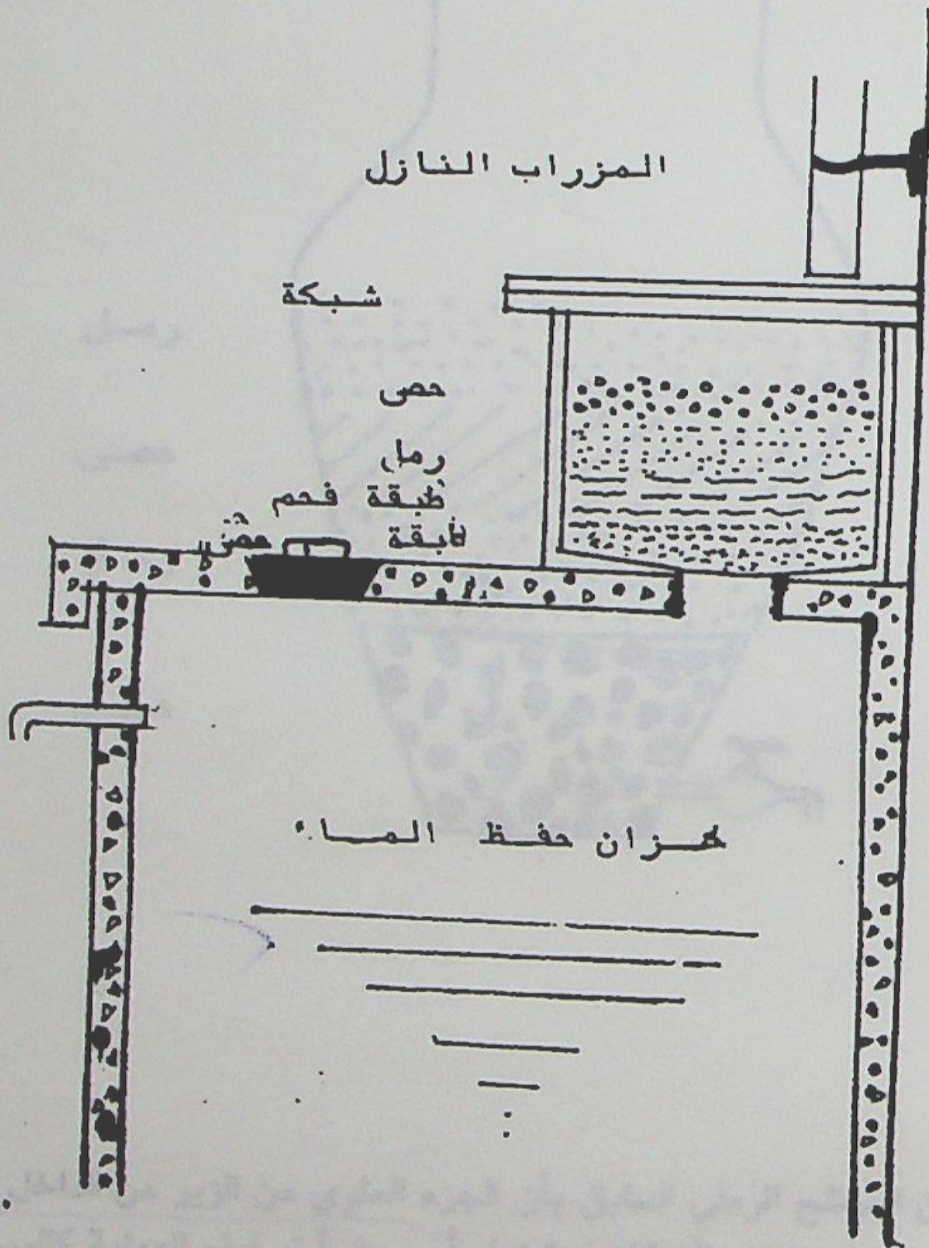 المزراب النازل
شبكة
حصى
رمل
طبقة فحم
طبقة
خزان حفظ الماء